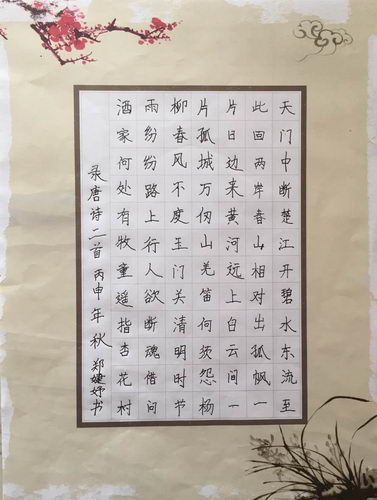 天门中断楚江开碧水东流至
此回两岸春山相对出孤帆一
片日边来黄河远上白云间一
片孤城万仞山羌笛何须怨杨
柳春风不度玉门关清明时节
雨纷纷路上行人欲断魂借问
酒家何处有牧童遥指杏花村
录唐诗二首丙申年秋郑婕妤书